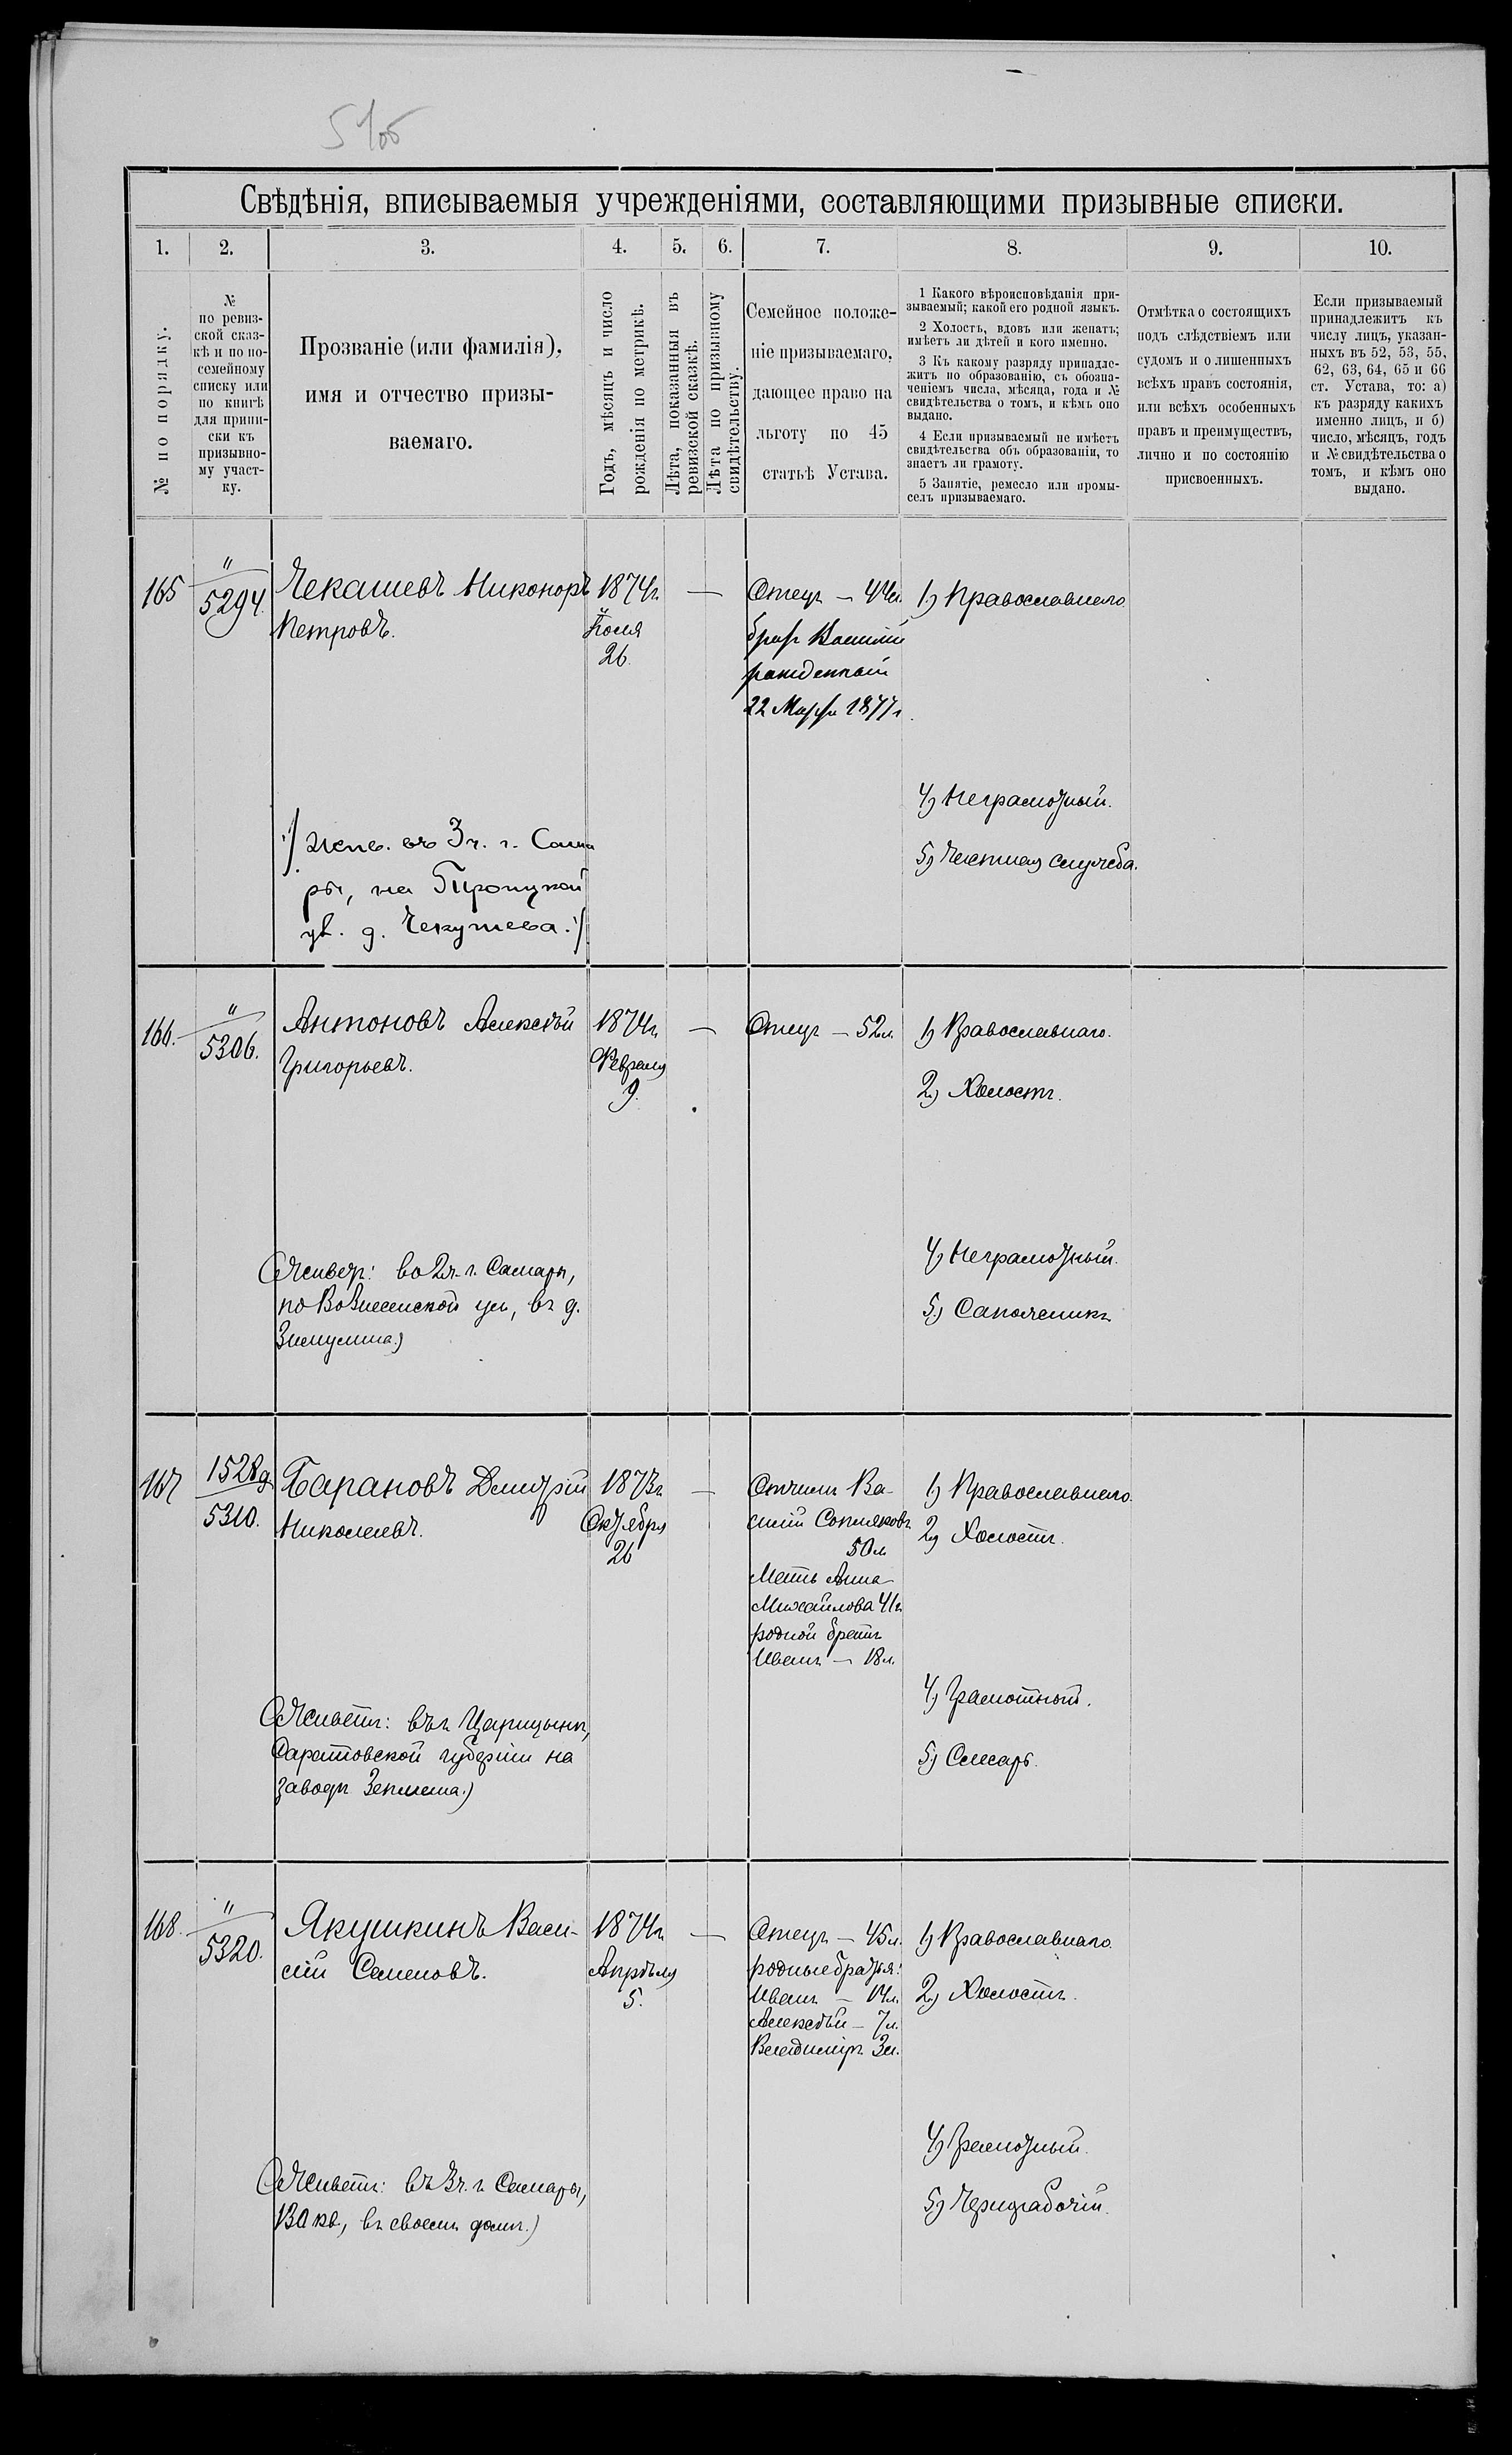 Свѣдѣнія, вписываемыя учрежденіями, составляющими призывные списки.
1. 2. 3. 4. 5. 6. 7. 8. 9. 10.
№ по порядку.
№
по ревиз-
ской сказ-
кѣ и по по-
семейному
списку или
по книгѣ
для припи-
ски къ
призывно-
му участ-
ку.
Прозваніе (или фамилія),
имя и отчество призы-
ваемаго.
Годъ, мѣсяцъ и число
рожденія по метрикѣ.
Лѣта, показанныя въ
ревизской сказкѣ.
Лѣта по призывному
свидѣтельству.
Семейное положе-
ніе призываемаго,
дающее право на
льготу по 45
статьѣ Устава.
1 Какого вѣроисповѣданія при-
зываемый; какой его родной языкъ.
2 Холостъ, вдовъ или женатъ;
имѣетъ ли дѣтей и кого именно.
3 Къ какому разряду принадле-
житъ по образованію, съ обозна-
ченіемъ числа, мѣсяца, года и №
свидѣтельства о томъ, и кѣмъ оно
выдано.
4 Если призываемый не имѣетъ
свидѣтельства объ образованіи, то
знаетъ ли грамоту.
5 Занятіе, ремесло или промы-
селъ призываемаго.
Отмѣтка о состоящихъ
подъ слѣдствіемъ или
судомъ и о лишенныхъ
всѣхъ правъ состоянія,
или всѣхъ особенныхъ
правъ и преимуществъ,
лично и по состоянію
присвоенныхъ.
Если призываемый
принадлежитъ къ
числу лицъ, указан-
ныхъ въ 52, 53, 55,
62, 63, 64, 65 и 66
ст. Устава, то: а)
къ разряду какихъ
именно лицъ, и б)
число, мѣсяцъ, годъ
и № свидѣтельства о
томъ, и кѣмъ оно
выдано.
165
"
5294.
Чекашевъ Никоноръ
Петровъ.
въ 3 ч. г. Сама
ры, на Троицкой
ул. д. Чекушева.
1874 г.
26.
Отецъ — 44 л.
братъ Василій
рожденный
22 Марта 1877 г.
1) Православнаго
4) Неграмотный.
5) Частная служба.
166.
"
5306.
Антоновъ Алексѣй
Григорьевъ.
(Живетъ: во 2 ч. г. Самары,
по Вознесенской ул, въ д.
1874 г.
Февраля
9.
Отецъ — 52 л.
1) Православнаго.
2) Холостъ.
4) Неграмотный.
5) Сапожникъ
167
1528
5310.
Барановъ Дмитрій
Николаевъ.
(Живетъ: въ г. Царицынѣ,
Саратовской губерніи на
заводѣ
1873 г.
Октября
26
Отчимъ Ва-
силій
50 л.
Мать Анна
Михайлова 41 г.
родной братъ
Иванъ — 18 л.
1) Православнаго
2) Холостъ.
4) Грамотный.
5) Слесарь.
168.
"
5320.
Якушкинъ Васи-
лій Семеновъ.
(Живетъ: въ 3 ч. г. Самары,
130 кв, въ своемъ домѣ.)
1874 г.
Апрѣля
5.
Отецъ — 45 л.
родные братья:
Иванъ — 14 л.
Алексѣй — 7 л.
Владиміръ 3 л.
1) Православнаго
2) Холостъ.
4) Грамотный.
5) Чернорабочій.